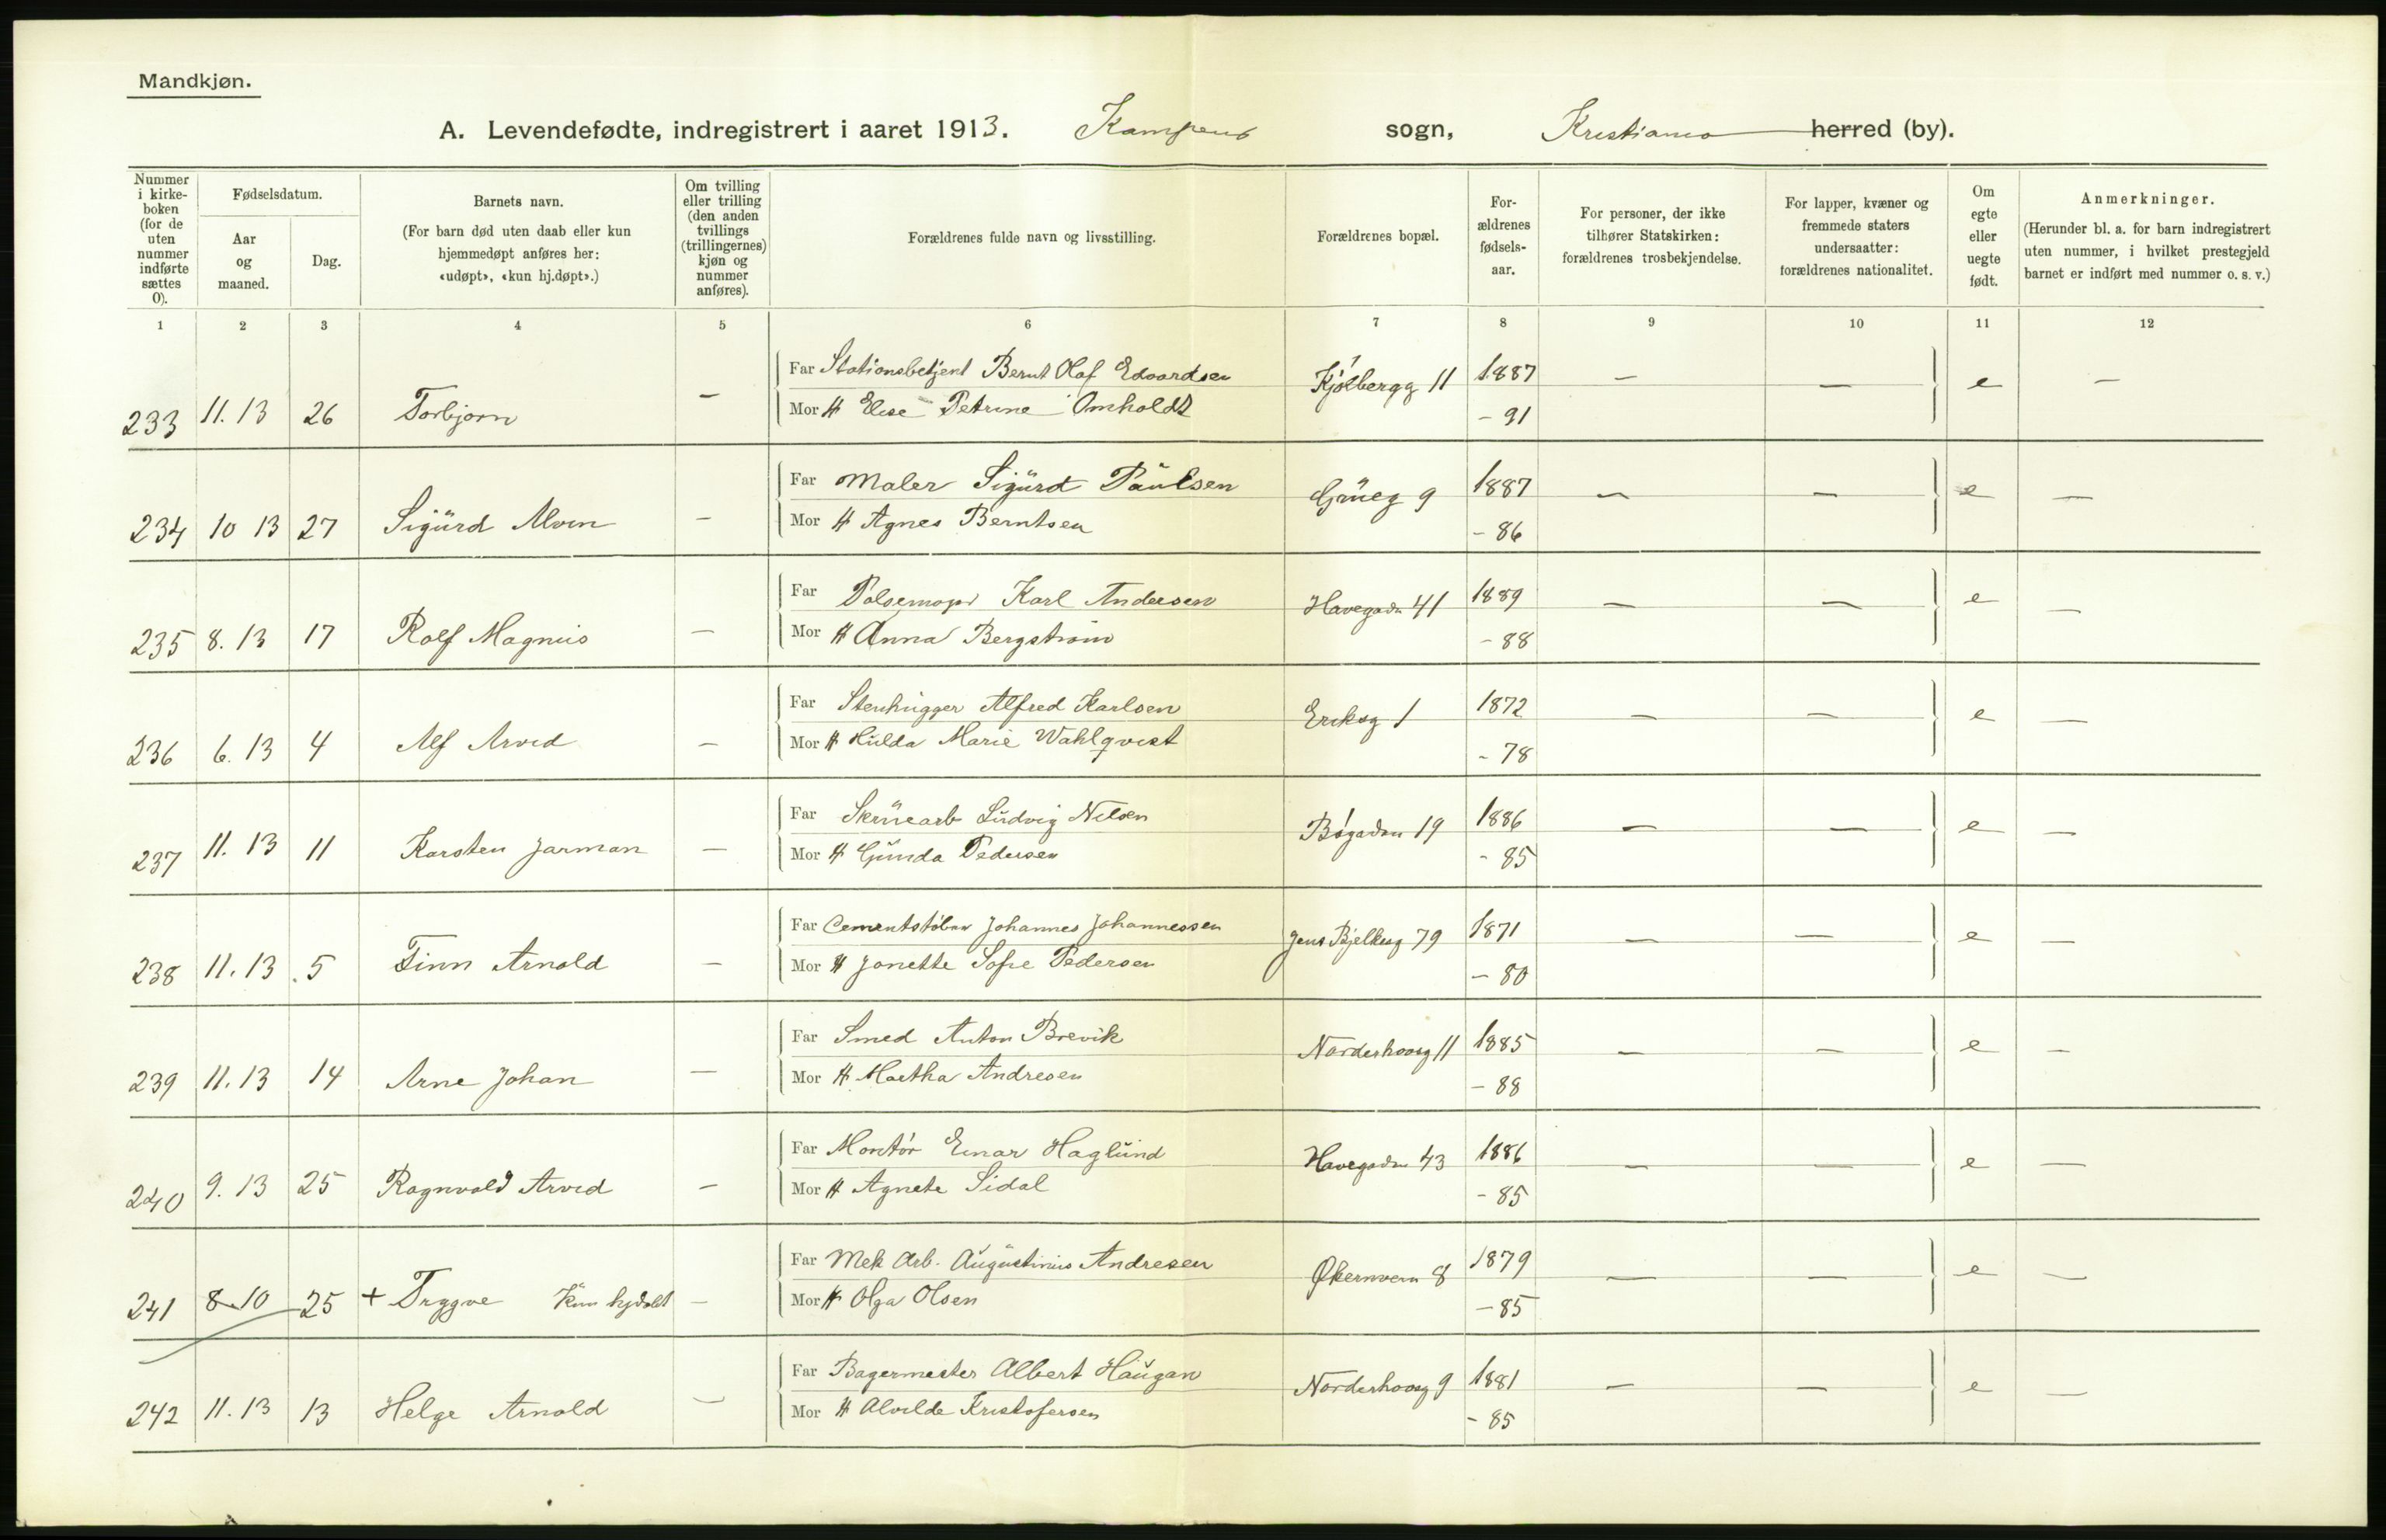 Mandkjøn.
A. Levendefødte, indregistrert i aaret 1913. Kampens sogn, Kristiania herred (by).
Nummer i kirkeboken (for de uten nummer indførte sættes 0).
Fødselsdatum.
Aar og maaned.
Dag.
Barnets navn.
(For barn død uten daab eller kun hjemmedøpt anføres her: «udøpt», «kun hj.døpt».)
Om tvilling eller trilling (den anden tvillings (trillingernes) kjøn og nummer anføres).
Forældrenes fulde navn og livsstilling.
Forældrenes bopæl.
Forældrenes fødselsaar.
For personer, der ikke tilhører Statskirken: forældrenes trosbekjendelse.
For lapper, kvæner og fremmede staters undersaatter: forældrenes nationalitet.
Om egte eller uegte født.
Anmerkninger.
(Herunder bl. a. for barn indregistrert uten nummer, i hvilket prestegjeld barnet er indført med nummer o. s. v.)
1 2 3 4 5 6 7 8 9 10 11 12
Far Stationsbetjent Bernt Olaf Edvardsen Kjølbergg 11 1887 — — e —
233 11. 13 26 Torbjørn — Mor H Elise Petrine Omholdt - 91
Far Maler Sigurd Paulsen Grüeg 9 1887 — — e —
234 10 13 27 Sigurd Alvin — Mor H Agnes Berntsen - 86
Far Pølsemager Karl Andersen Havegadn 41 1889 — — e —
235 8. 13 17 Rolf Magnus — Mor H Anna Bergstrøm - 88
Far Stenhugger Alfred Karlsen Eriksg 1 1872 — — e —
236 6. 13 4 Alf Arvid — Mor H Hulda Marie Wahlqvist - 78
Far Skruearb Ludvig Nilsen Bøgadn 19 1886 — — e —
237 11. 13 11 Karsten Jarman — Mor H Gunda Pedersen - 85
Far Cementstøber Johannes Johannessen Jens Bjelkesg 79 1871 — — e —
238 11. 13 5 Finn Arnold — Mor H Janette Sofie Pedersen - 80
Far Smed Anton Brevik Norderhovsg 11 1885 — — e —
239 11. 13 14 Arne Johan — Mor H Martha Andresen - 88
Far Montør Einar Haglund Havegadn 43 1886 — — e —
240 9. 13 25 Ragnvald Arvid — Mor H Agnete Sidal - 85
Far Mek Arb. Augustinius Andresen Økernvein 8 1879 — — e —
241 8.10 25 + Trygve Kun hjdøbt — Mor H Olga Olsen - 85
Far Bagermester Albert Haugan Norderhovsg 9 1881 — — e —
242 11. 13 13 Helge Arnold — Mor H Alvilde Kristofersen - 85